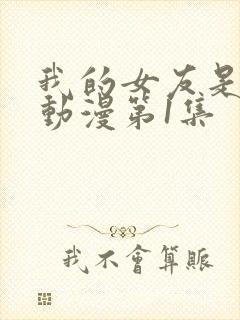 我的女友是
動漫第1集
我不會算賬